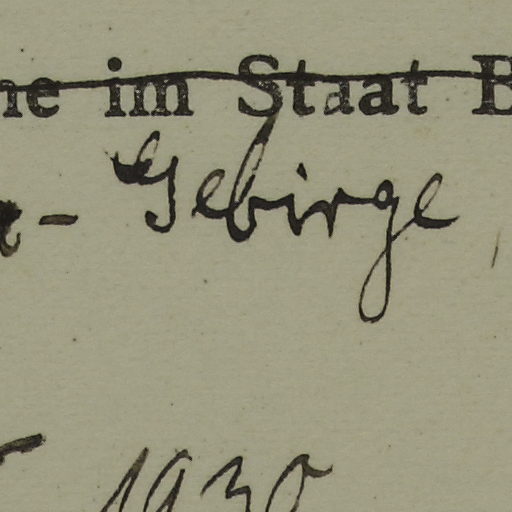 ne im Staat B
- Gebirge
1930